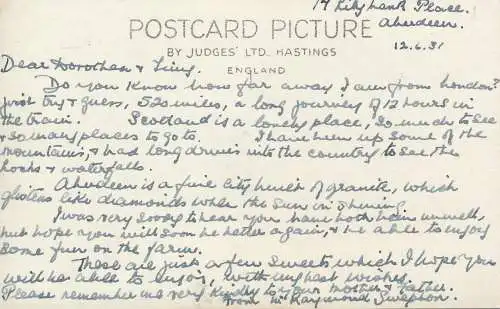 17 Lilybank Place.
Aberdeen.
POSTCARD PICTURE
12.6.31
BY JUDGES' LTD. HASTINGS
ENGLAND
Dear Dorothea &
Do you know how far away I am from London?
just try & guess, 520 miles, a long journey of 12 hours in
the train. Scotland is a lovely place, so much to see
& so many places to go to. I have been up some of the
mountains, & had long drives into the country to see the
lochs & waterfalls.
Aberdeen is a fine city built of granite, which
glistens like diamonds when the sun is shining.
I was very sorry to hear you have both been unwell,
but hope you will soon be better again, & be able to enjoy
some fun on the farm.
These are just a few sweets which I hope you
will be able to enjoy, with my best wishes.
Please remember me very kindly to your mother & father.
from Mr Raymond